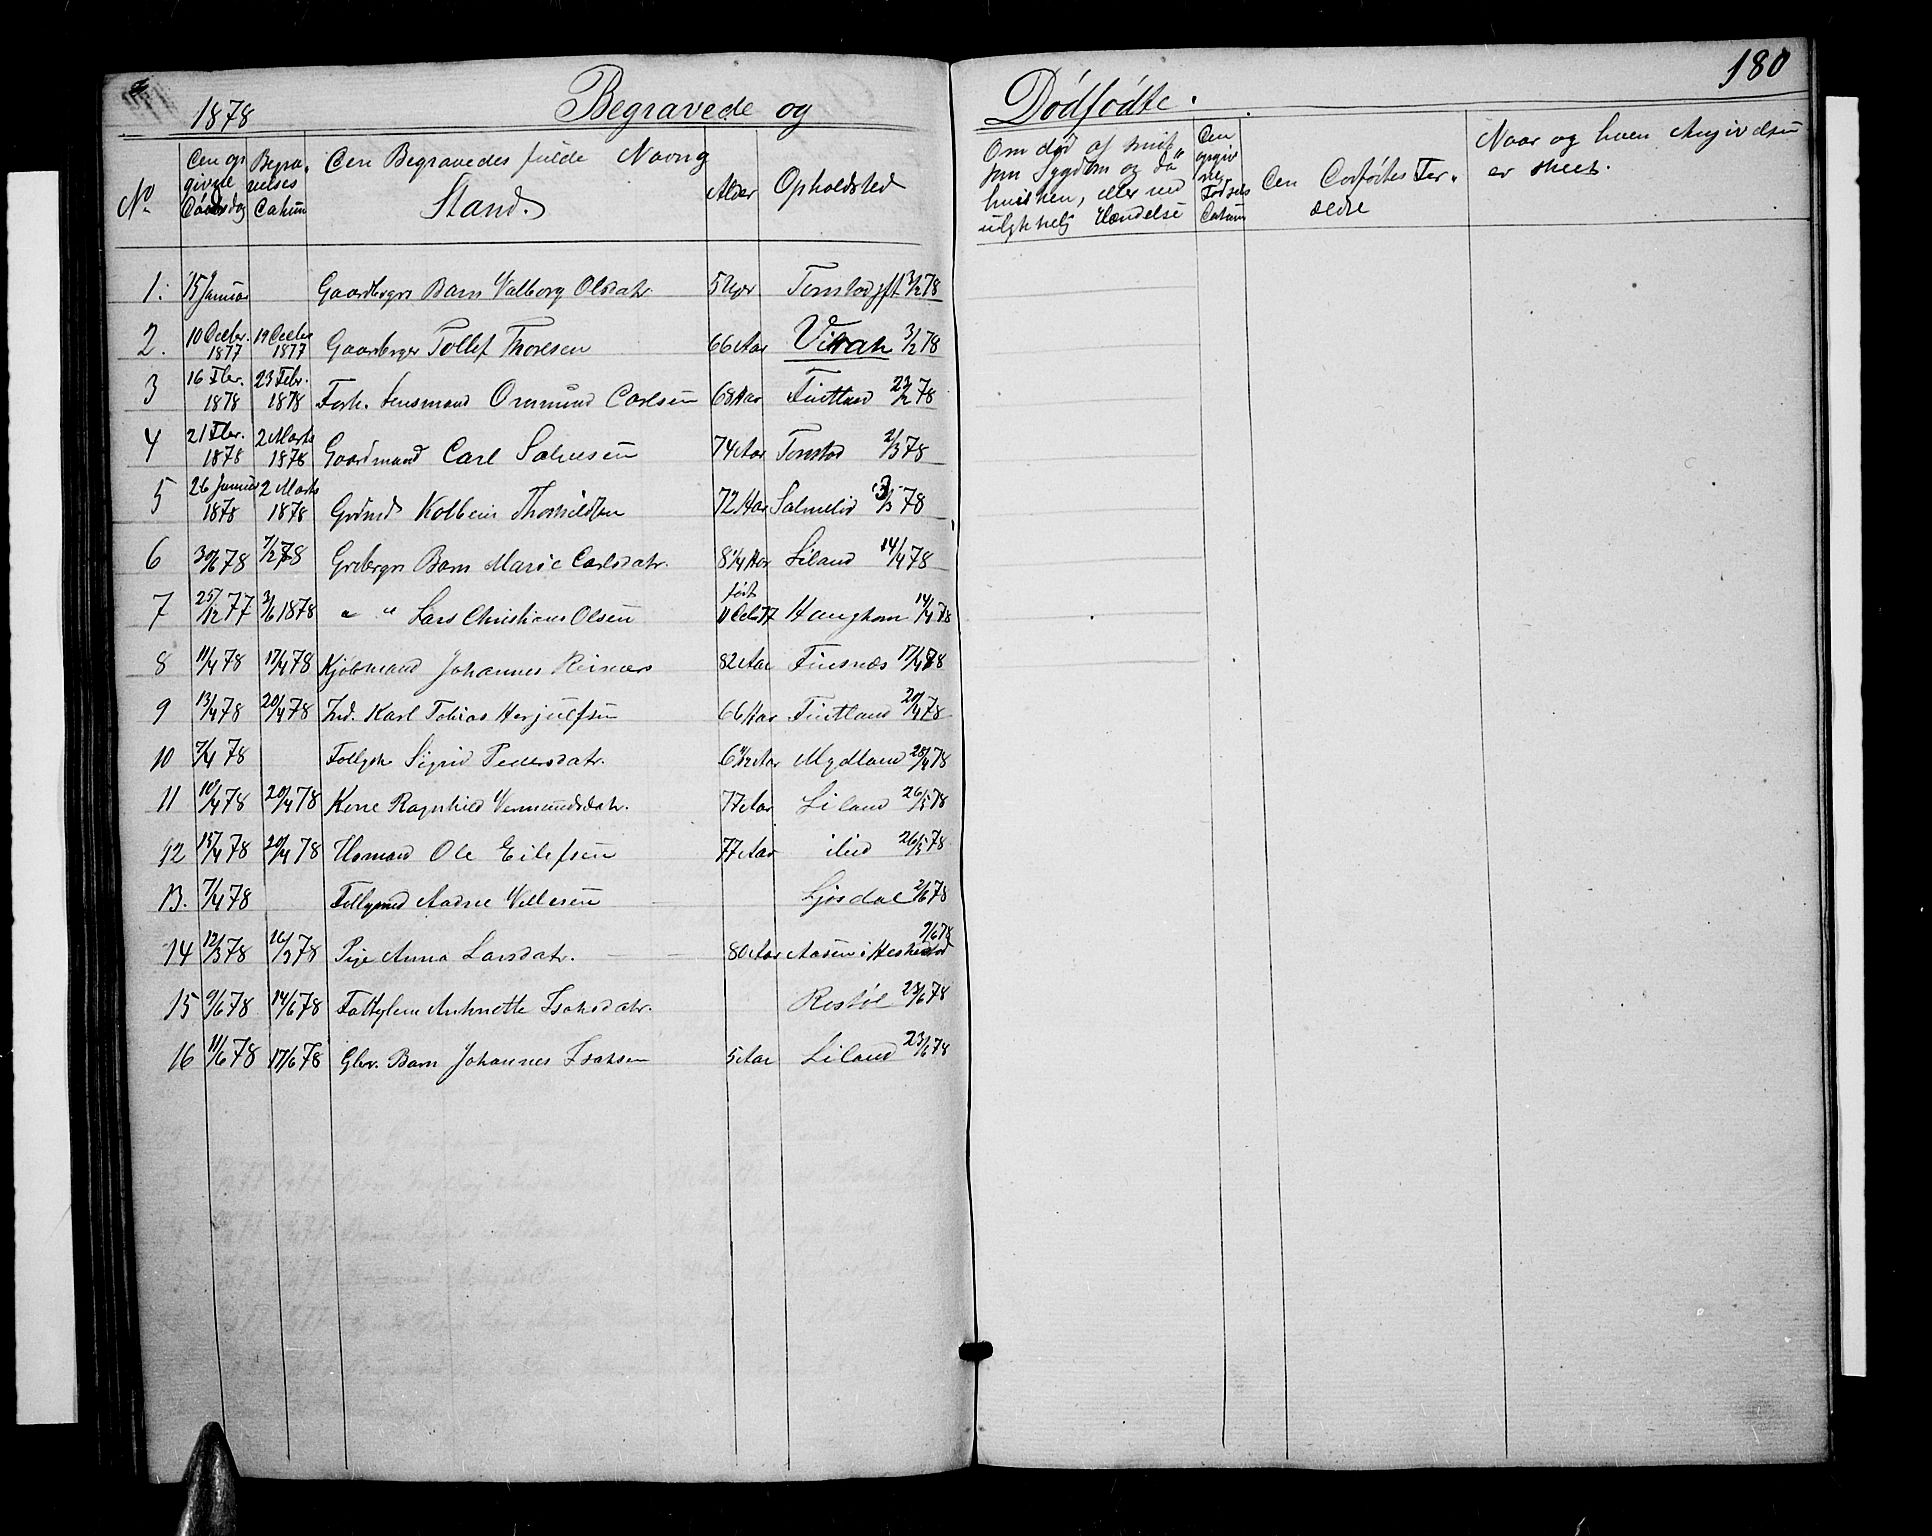 180
1878 Begravede og Dødfødte.
No
Den op
givne
Dødsdag
Begra-
velses
Datum
Den Begravedes fulde Navn og
Stand.
Alder
Opholdsted
Om død af smit-
som Sygdom og da
hvilken, eller ved
ulykkelig Hændelse
Den
opgiv
ne
Fødsels
Datum
Den Dødfødtes For-
ældre
Naar og hvem Angivelsen
er skeet.
1. 15 Januar Gaardbrgrs Barn Valborg Olsdatr 5 Uger Tonstad 3/2 78
2. 10 Decbr. 1877 19 Decbr 1877 Gaardbrger Tollef Thorsen 66 Aar Virak 3/2 78
3 16 Fbr. 1878 23 Febr. 1878 Forh. Lensmand Ommund Carlsen 68 Aar Fintland 23/2 78
4 21 Fbr. 1878 2 Marts 1878 Gaardmand Carl Salvesen 74 Aar Tonstad 2/3 78
5 26 Januar 1878 2 Marts 1878 Grdmd Kolbein Thorkildsen 72 Aar Salmelid 3/3 78
6 30/6 78 7/2 78 Grdbrgrs Barn Marie Carlsdatr. 8 1/4 Aar Liland 14/4 78
7 25/12 77 3/6 1878 " " Lars Christian Olsen født 11 Oct 77 Haughom 14/4 78
8 11/4 78 17/4 78 Kjøbmand Johannes Reiners 82 Aar Finsnæs 17/4 78
9 13/4 78 20/4 78 Ind. Karl Tobias Herjulfsen 66 Aar Fintland 20/4 78
10 7/4 78 Follgsk Sigrid Pedersdatr. 6 1/2 Aar Mydland 28/4 78
11 10/4 78 20/4 78 Kone Ragnhild Vermundsdatr. 77 Aar Liland 26/5 78
12 15/4 78 20/4 78 Husmand Ole Eilefsen 77 Aar ibid 26/5 78
13. 7/4 78 Follgmd Aadne Villesen Ljosdal 2/6 78
14 12/3 78 16/3 78 Pige Anna Larsdatr. 80 Aar Aasen i Heskestad 9/6 78
15 9/6 78 14/6 78 Fattiglem Antonette Isaksdatr. Restøl 23/6 78
16 11/6 78 17/6 78 Gbr. Barn Johannes Isaksen 5 Aar Liland 23/6 78